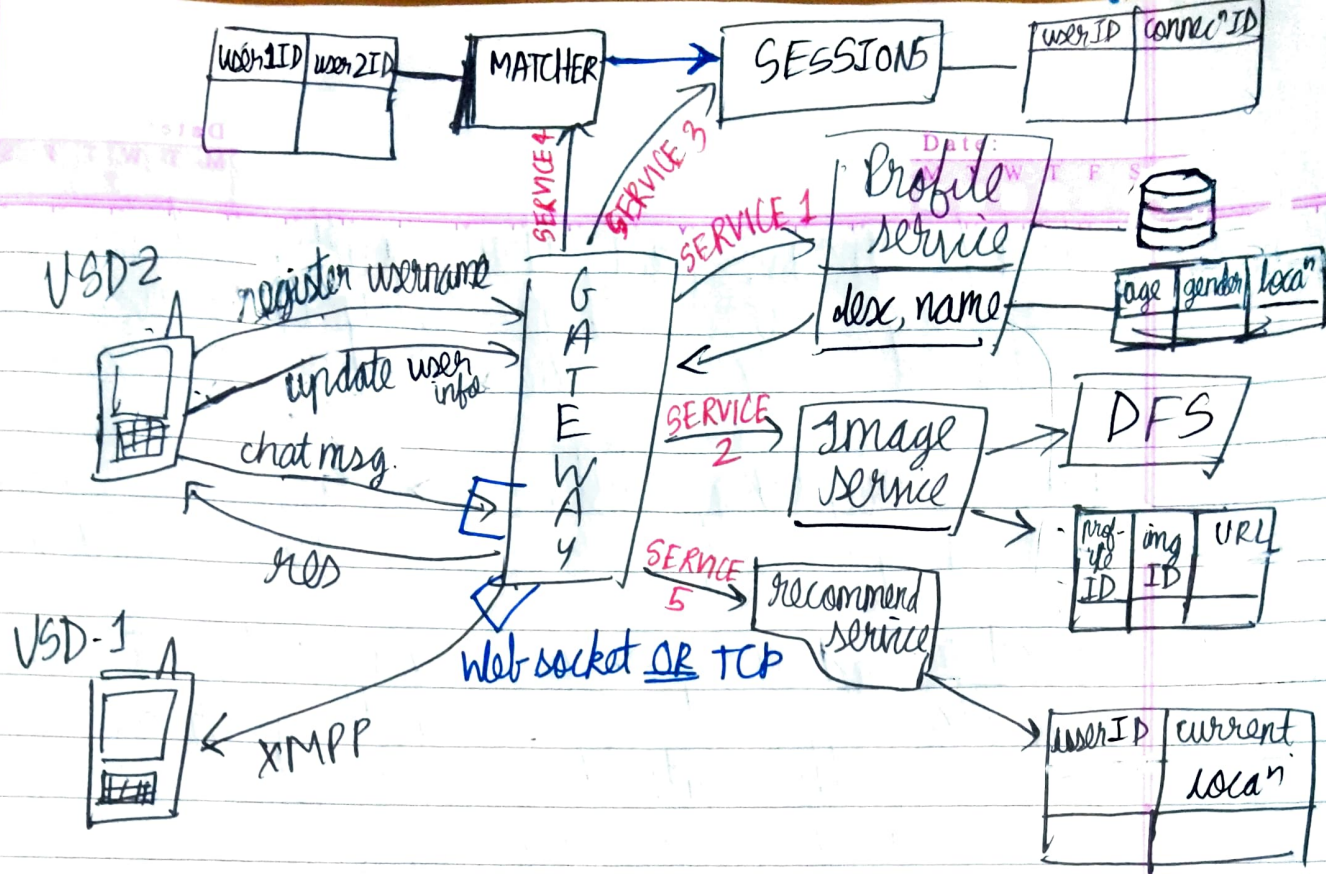 user1ID user2ID
MATCHER
SESSIONS
userID connecⁿID
Date:
M T W T F S
SERVICE 4
SERVICE 3
SERVICE 1
Profile
service
desc, name
age gender locaⁿ
USD-2
register username
update user
info
chat msg.
res
GATEWAY
SERVICE
2
Image
service
DFS
prof-
ile
ID
img
ID
URL
SERVICE
5
recommend
service
Web socket OR TCP
USD-1
XMPP
userID current
locaⁿ